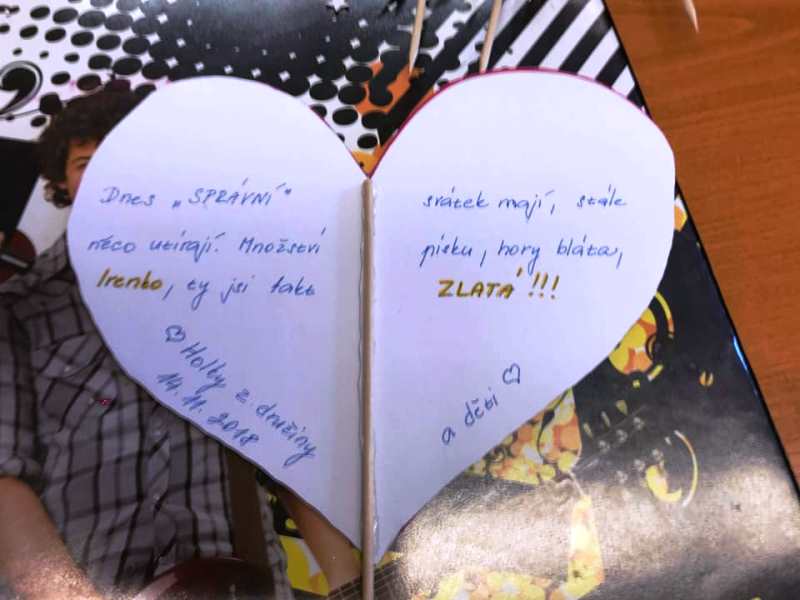 Dnes „SPRÁVNÍ" svátek mají, stále
něco utírají. Množství písku, hory bláta,
Irenko, ty jsi také ZLATÁ!!!
♡ Holky z družiny a děti ♡
14.11.2018